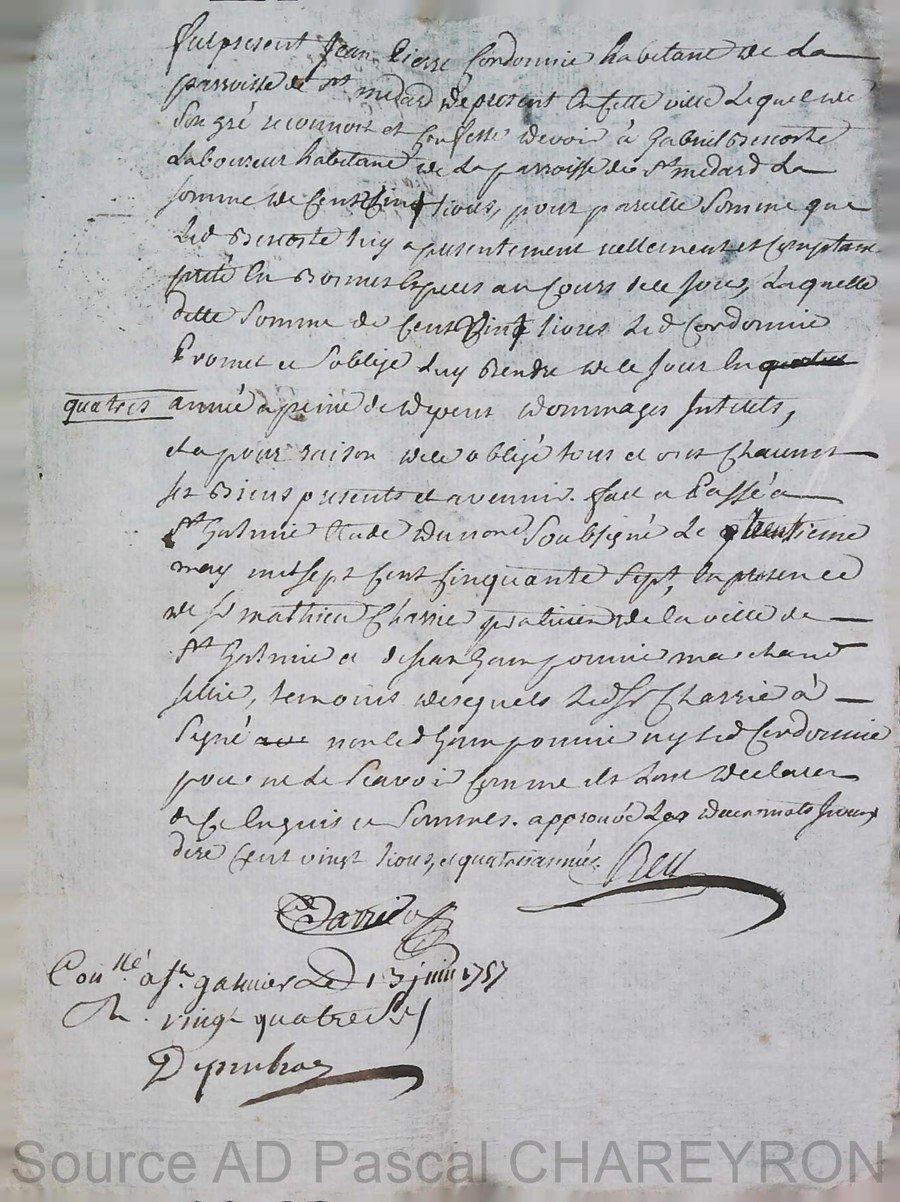 fut present Jean Pierre Cordonnie habitant de la
parroisse de st medard de present en cette ville Lequel de
son gré reconnoit et confesse devoir à Gabriel
Laboureur habitant de la parroisse de St medard La
somme de cent vingt livres, pour pareille somme que
Led luy a presentement reellement et comptant
preté en bonnes especes au cours de ce jour, Laquelle
ditte somme de cent vingt livres Led Cordonnie
Promet et s'oblige luy rendre de ce jour en
quatres année a peine de depens dommages interets,
et a pour raison de ce obligé tous et uns chacuns
ses biens presents et avennir. fait et Passé a
St Galmie Etude du nore soubsigné Le trentieme
may mil sept cent cinquante sept, en presence
de sr mathieu Charrie praticien de la ville de
St Galmie et de Jean marchand
sellie, temoins desquels Led Sr Charrie à
signé non led ny led Cordonnie
pour ne le scavoir comme ils l'ont declaré
de ce enquis et sommés. approuvé Les deux mots
dire cent vingt livres, et quatres années. Rey
Charrie
Conllé a st galmier Le 13 juin 1757
R. vingt quatre sols